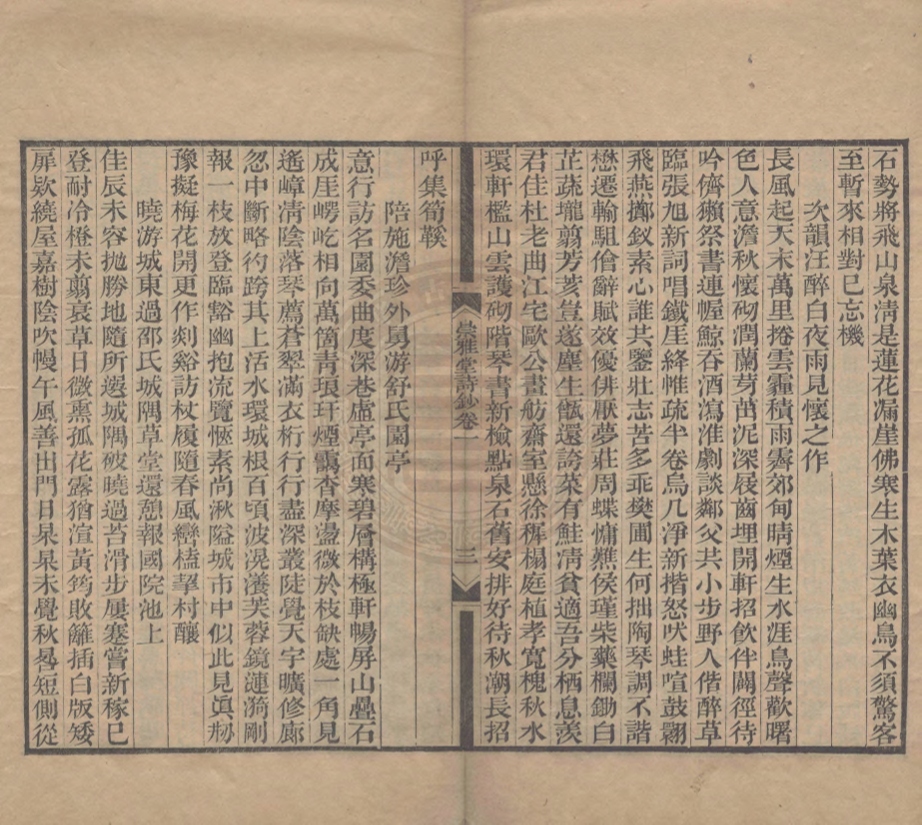 石勢將飛山泉淸是蓮花漏崖佛寒生木葉衣幽鳥不須驚客
至暫來相對已忘機
次韻汪醉白夜雨見懷之作
長風起天末萬里捲雲霾積雨霽郊甸晴煙生水涯鳥聲歡曙
色人意澹秋懷砌潤蘭芽茁泥深屐齒埋開軒招飲伴闢徑待
吟儕獺祭書連幄鯨吞酒瀉淮劇談鄰父共小步野人偕醉草
臨張旭新詞唱鐵厓絳帷疏半卷烏几淨新揩怒吠蛙喧鼓翾
飛燕擲釵素心誰共鑒壯志苦多乖樊圃生何拙陶琴調不諧
懋遷輸駔儈辭賦效優俳厭夢莊周蝶慵蕉侯瑾柴藥欄鋤白
芷蔬壠翦芳荄豈遂塵生甑還誇菜有鮭淸貧適吾分栖息羨
君佳杜老曲江宅歐公畫舫齋室懸徐穉榻庭植孝寬槐秋水
環軒檻山雲護砌階琴書新檢點泉石舊安排好待秋潮長招
崇雅堂詩鈔卷一
三
呼集筍鞵
陪施澹珍外舅游舒氏園亭
意行訪名園委曲度深巷虛亭面寒碧層構極軒暢屏山疊石
成厓崿屹相向萬箇靑琅玕煙靄杳摩盪微於枝缺處一角見
遙嶂淸陰落琴薦蒼翠滿衣桁行行盡深叢陡覺天宇曠修廊
忽中斷略彴跨其上活水環城根百頃波滉瀁芙蓉鏡漣漪剛
報一枝放登臨豁幽抱流覽愜素尚湫隘城市中似此見眞物
豫擬梅花開更作剡谿訪杖履隨春風巒榼挈村釀
曉游城東過邵氏城隅草堂還憩報國院池上
佳辰未容拋勝地隨所選城隅破曉過苔滑步屢蹇嘗新稼已
登耐冷橙未翦衰草日微熏孤花露猶渲黃筠敗籬插白版矮
扉欵繞屋嘉樹陰吹幔午風善出門日杲杲未覺秋晷短側從